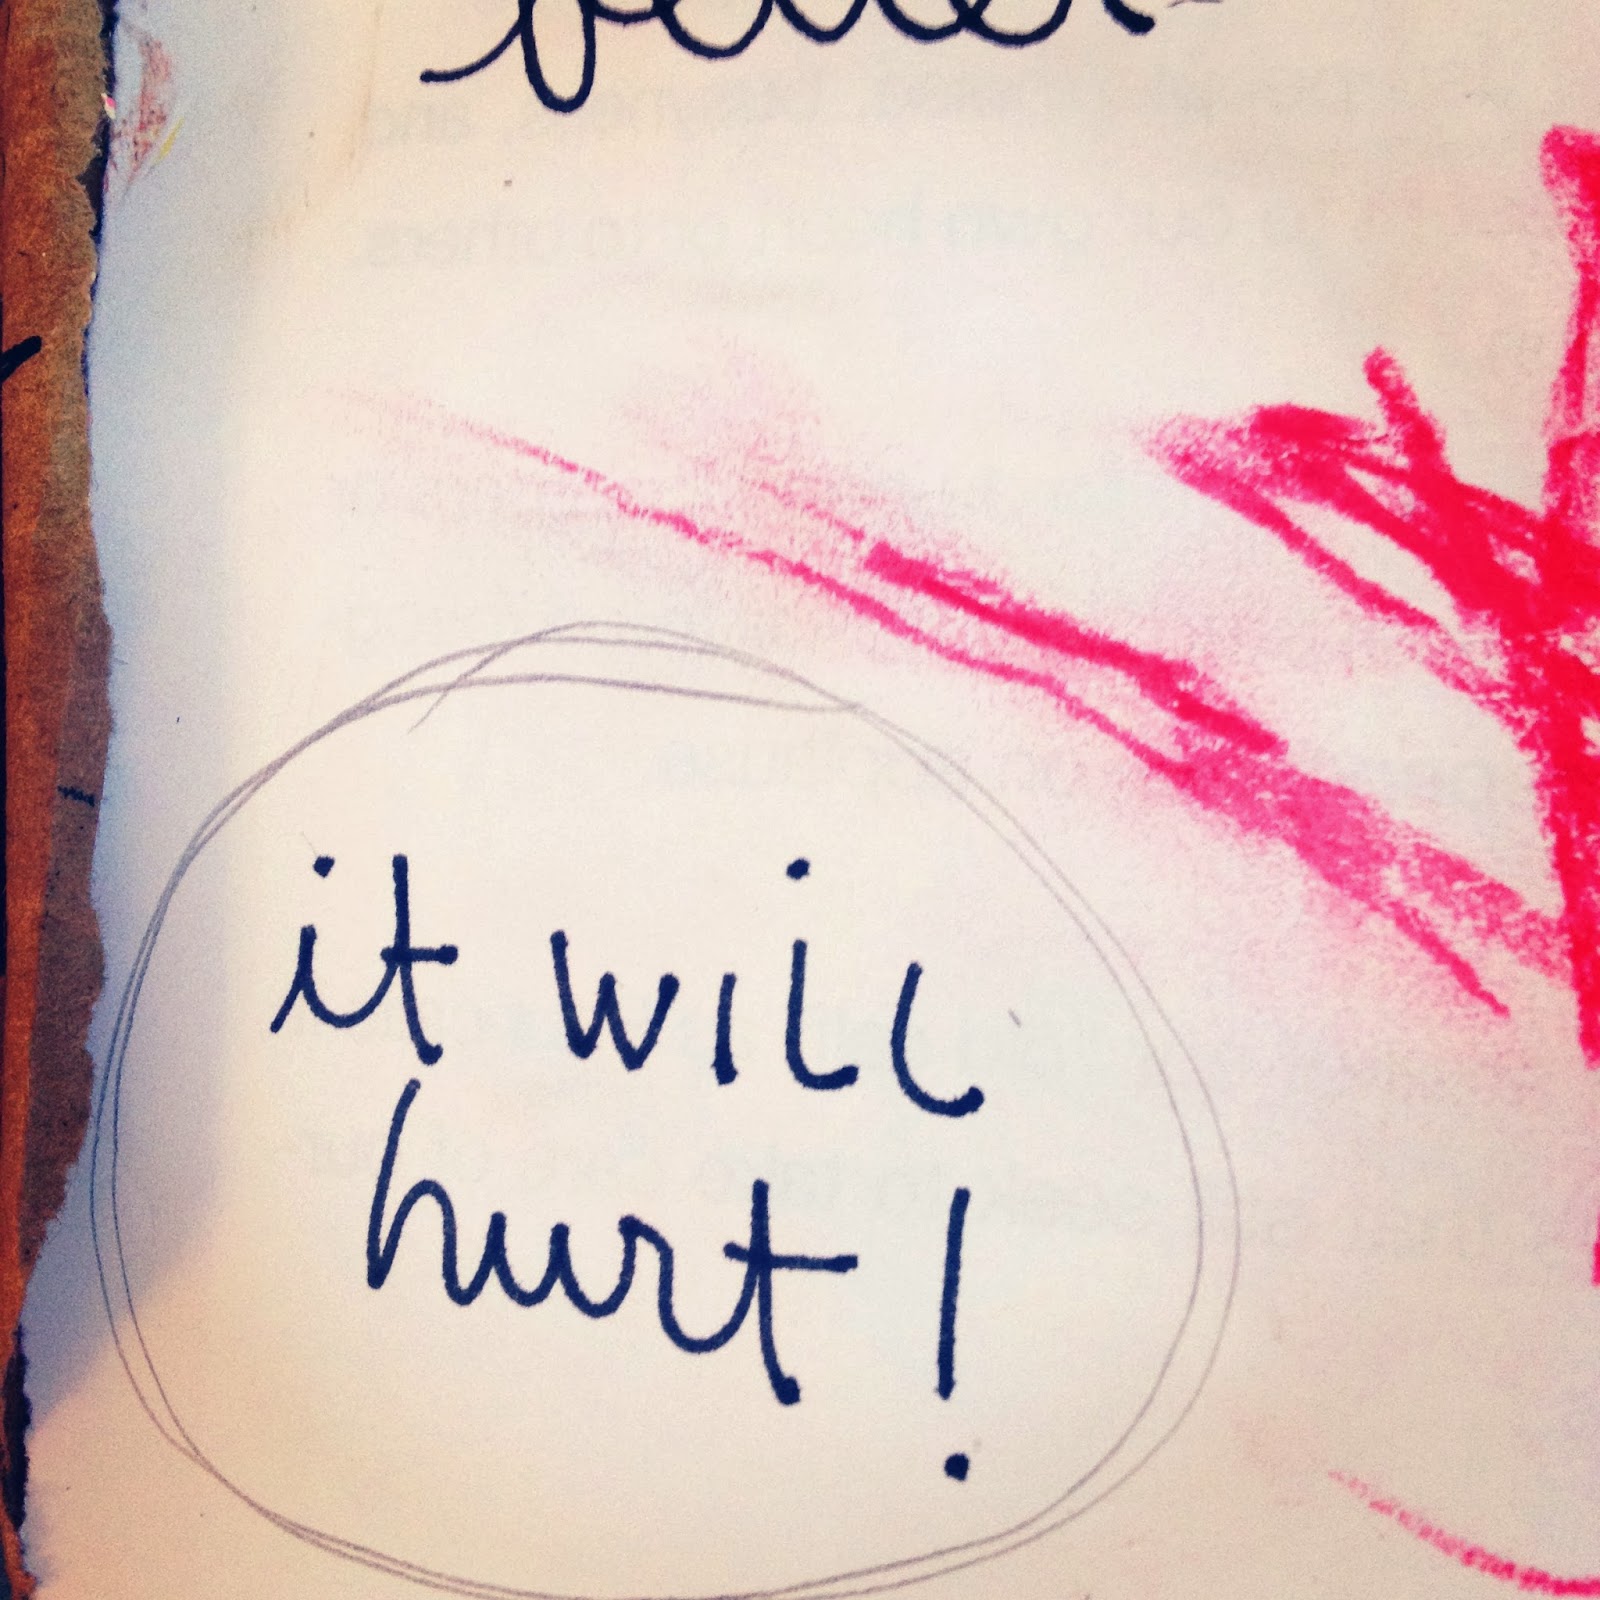 it will
hurt!